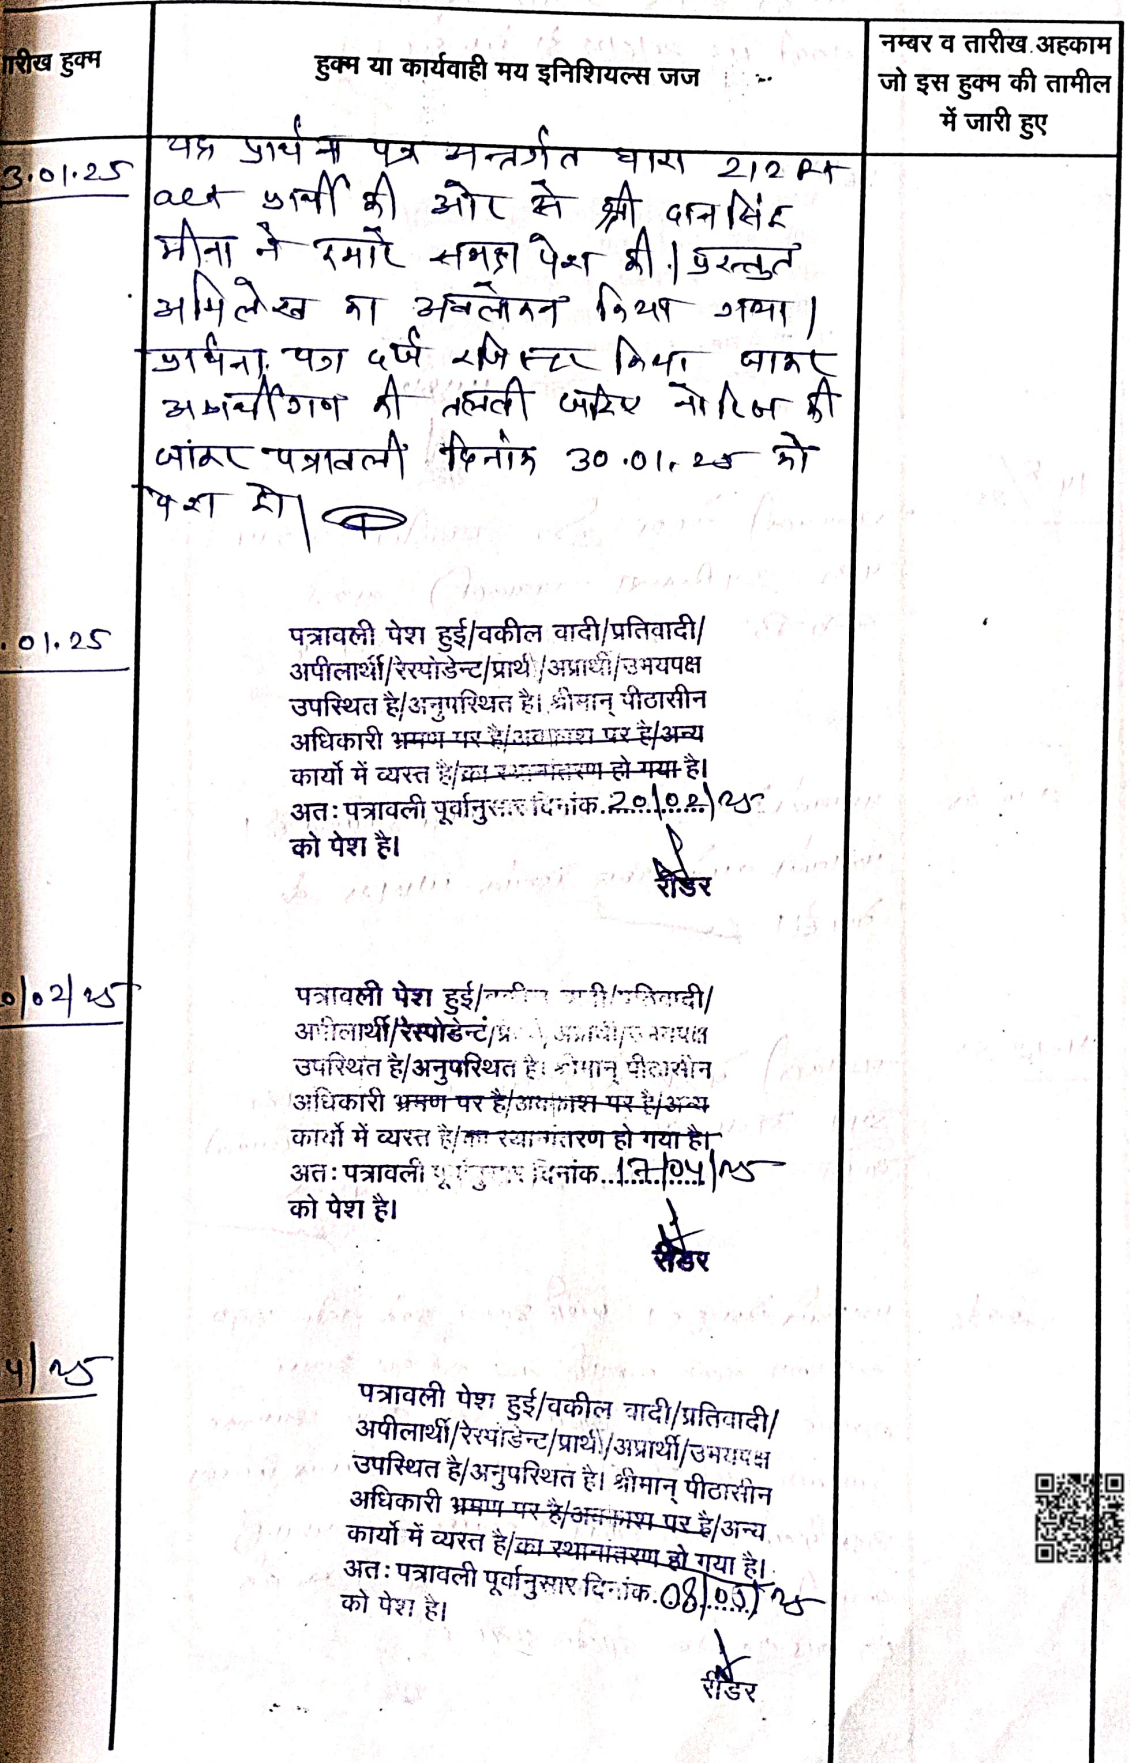 तारीख हुक्म
हुक्म या कार्यवाही मय इनिशियल्स जज
नम्बर व तारीख अहकाम
जो इस हुक्म की तामील
में जारी हुए
3.01.25
यह प्रार्थना पत्र अन्तर्गत धारा 212 RT
act प्रार्थी की ओर से श्री दानसिंह
मीना ने हमारे समक्ष पेश की। प्रस्तुत
अभिलेख का अवलोकन किया गया।
प्रार्थना पत्र दर्ज रजिस्टर किया जाकर
अप्रार्थीगण की तलबी जरिए नोटिस की
जाकर पत्रावली दिनांक 30.01.25 को
पेश हो।
.01.25
पत्रावली पेश हुई/वकील वादी/प्रतिवादी/
अपीलार्थी/रेस्पोडेन्ट/प्रार्थी/अप्रार्थी/उभयपक्ष
उपस्थित है/अनुपस्थित है। श्रीमान् पीठासीन
अधिकारी भ्रमण पर है/अवकाश पर है/अन्य
कार्यो में व्यस्त है/का स्थानांतरण हो गया है।
अतः पत्रावली पूर्वानुसार दिनांक 20/02/25
को पेश है।
रीडर
0/02/25
पत्रावली पेश हुई/वकील वादी/प्रतिवादी/
अपीलार्थी/रेस्पोडेन्ट/प्रार्थी/अप्रार्थी/उभयपक्ष
उपस्थित है/अनुपस्थित है। श्रीमान् पीठासीन
अधिकारी भ्रमण पर है/अवकाश पर है/अन्य
कार्यो में व्यस्त है/का स्थानांतरण हो गया है।
अतः पत्रावली पूर्वानुसार दिनांक 17/04/25
को पेश है।
रीडर
4/25
पत्रावली पेश हुई/वकील वादी/प्रतिवादी/
अपीलार्थी/रेस्पोडेन्ट/प्रार्थी/अप्रार्थी/उभयपक्ष
उपस्थित है/अनुपस्थित है। श्रीमान् पीठासीन
अधिकारी भ्रमण पर है/अवकाश पर है/अन्य
कार्यो में व्यस्त है/का स्थानांतरण हो गया है।
अतः पत्रावली पूर्वानुसार दिनांक 08/05/25
को पेश है।
रीडर